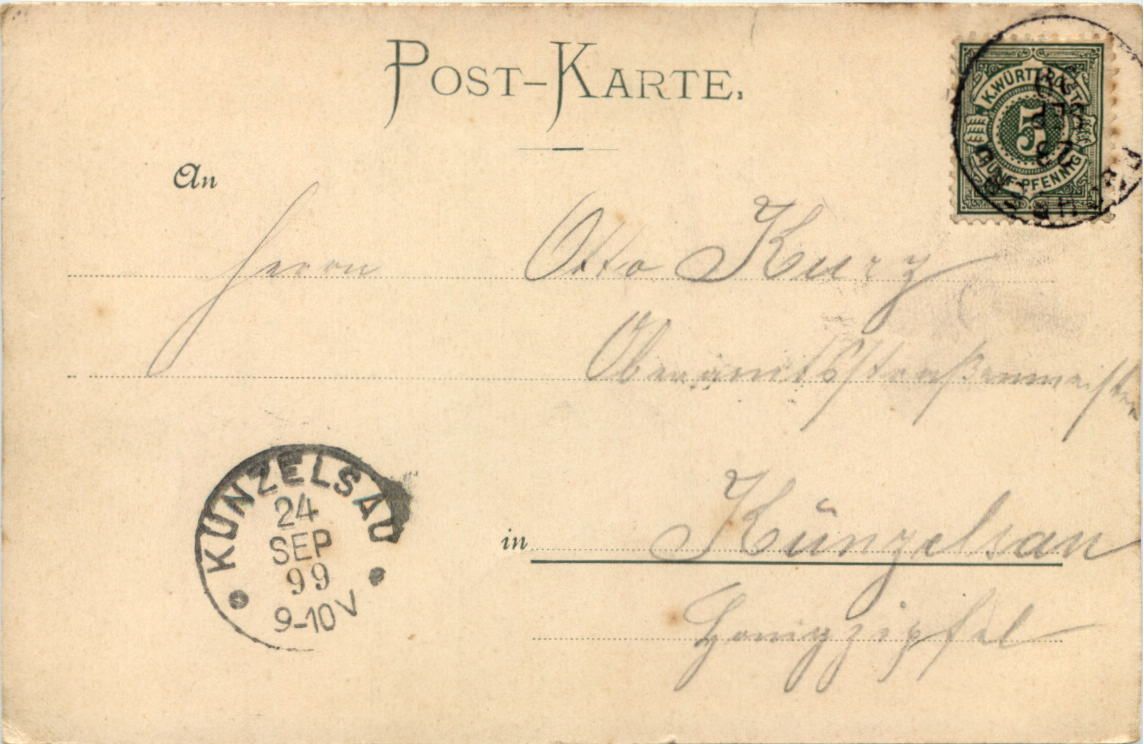 POST-KARTE.
K. WÜRTT. POST
5
FÜNF PFENNIG
An
Herrn Otto Kurz
Oberamtsstraßenmeister
KÜNZELSAU
24
SEP
99
9-10V
in Künzelsau